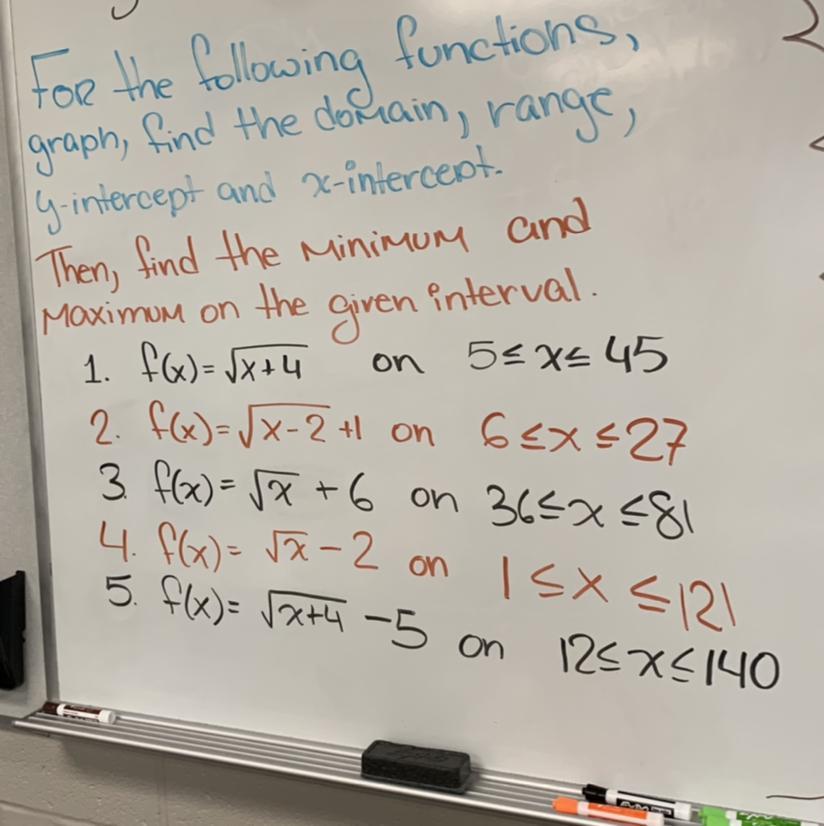 For the following functions,
graph, find the domain, range,
y-intercept and x-intercept.
Then, find the Minimum and
Maximum on the given interval.
1. f(x)=√x+4 on 5≤x≤45
2. f(x)=√x-2+1 on 6≤x≤27
3. f(x)=√x+6 on 36≤x≤81
4. f(x)=√x-2 on 1≤x≤121
5. f(x)=√x+4-5 on 12≤x≤140